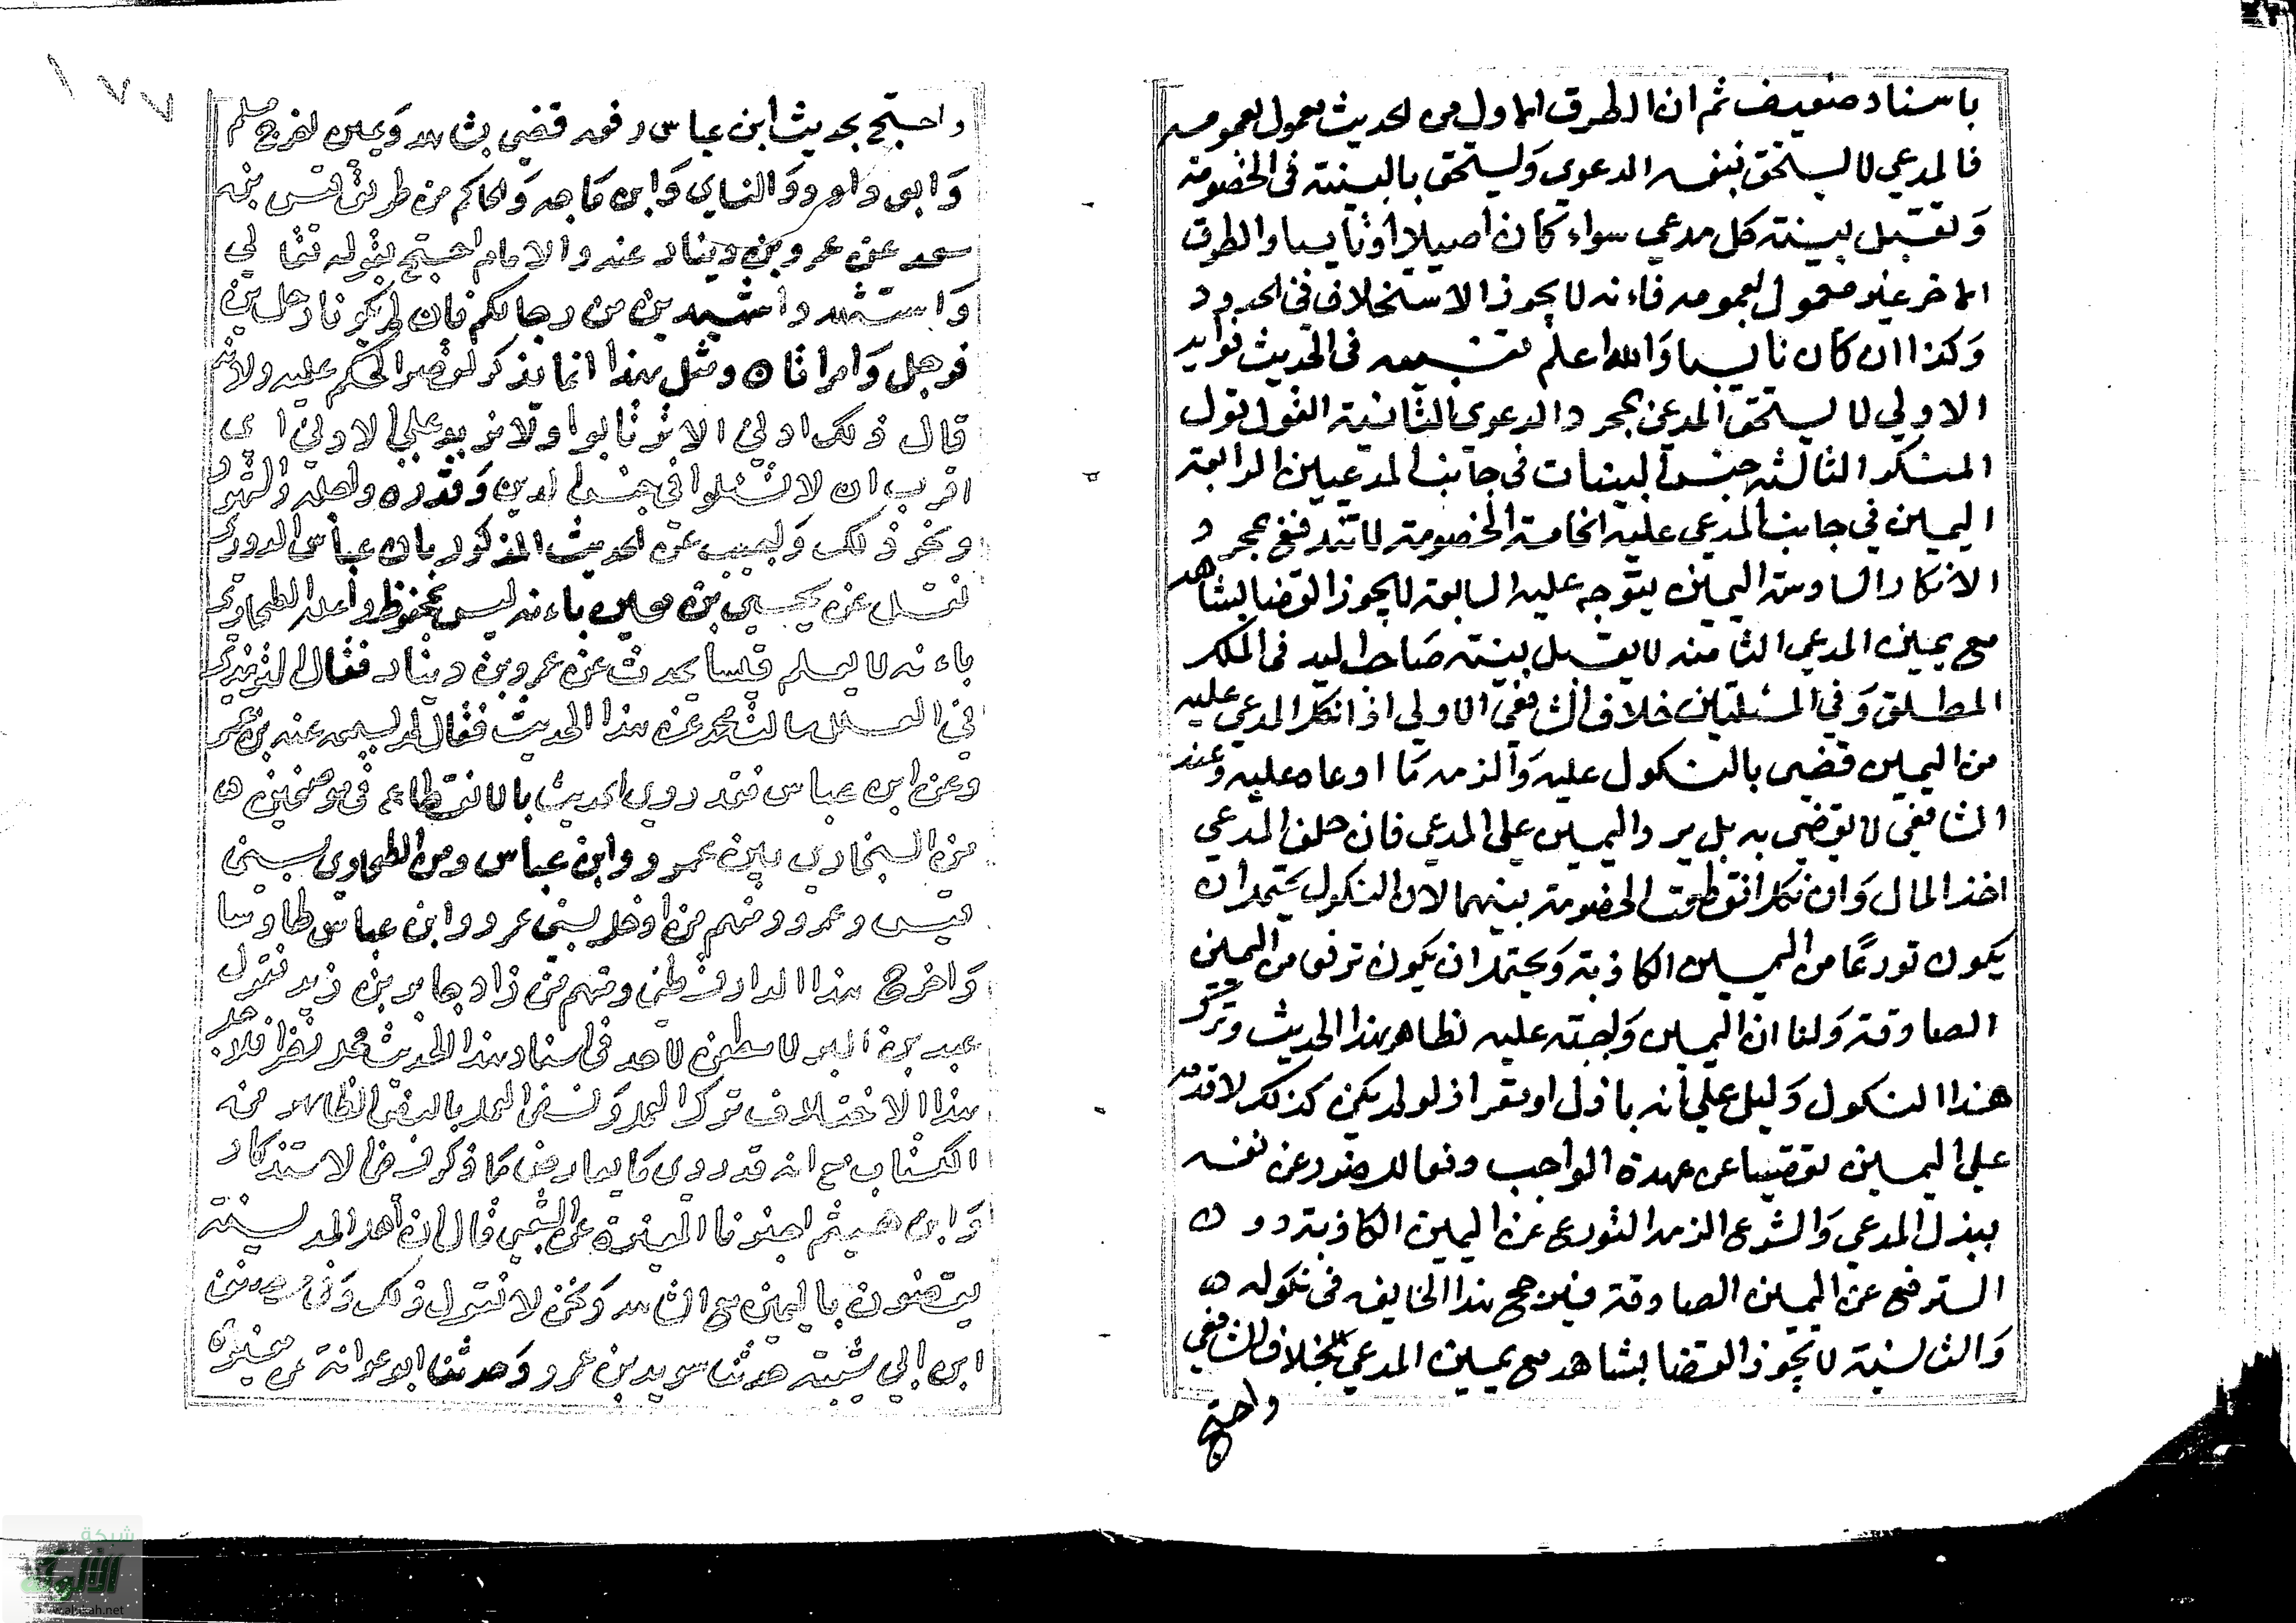 باسناد ضعيف ثم ان الطرق الاول من الحديث معمول بعمومه
فالمدعي لا يستحق بنفس الدعوي وليستحق بالبينة في الخصومة
وتقبل بينة كل مدعي سواء كان اصيلا او نايبا والطرق
الاخر غير معمول بعمومه فاءنه لا يجوز الاستحلاف في الحدود
وكذا ان كان نايبا والله اعلم تنبيه في الحديث فوايد
الاولي لا يستحق المدعي بمجرد الدعوي الثانية القول قول
المنكر الثالثة جنس البينات في جانب المدعيين الرابعة
اليمين في جانب المدعي عليه الخامسة الخصومة لا تندفع بمجرد
الانكار السادسة اليمين يتوجه عليه السابعة لا يجوز القضا بشاهد
مع يمين المدعي الثامنه لا يقبل بينة صاحب اليد في الملك
المطلق وفي المسئلتين خلاف الشافعي الاولي اذا نكل المدعي عليه
من اليمين قضي بالنكول عليه والزمه ما ادعاه عليه وعند
الشافعي لا يقضي به بل يرد اليمين علي المدعي فان حلف المدعي
اخذ المال وان نكل انقطعت الخصومة بينهما لان النكول يحتمل ان
يكون تورعًا من اليمين الكاذبة ويحتمل ان يكون ترفع من اليمين
الصادقة ولنا ان اليمين واجبة عليه لظاهر هذا الحديث وترك
هذا النكول دليل علي انه باذل او مقر اذ لو لم يكن كذلك لاقدم
علي اليمين تفصيا عن عهدة الواجب ودفعا للضرر عن نفسه
ببذل المدعي والشرع الزمه التورع عن اليمين الكاذبة دون
الترفع عن اليمين الصادقة فيترجح هذا الخايف في نكوله
والثانية لا يجوز القضا بشاهد مع يمين المدعي خلاف الشافعي
واحتج
١٧٧
واحتج بحديث ابن عباس رفعه قضي بشاهد ويمين اخرج مسلم
وابو داود والنساي وابن ماجه والحاكم من طريق قيس بن
سعد عن عمرو بن دينار عنه والامام احتج بقوله تعالي
واستشهدوا شهيدين من رجالكم فان لم يكونا رجلين
فرجل وامراتان ومثل هذا انما يذكر لقصر الحكم عليه ولانه
قال ذلك ادني الا ترتابوا ولا مزيد علي الادني اي
اقرب ان لا تشكوا في جنس الدين وقدره واجله والشهود
ونحو ذلك ولجيب عن الحديث المذكور بان عباس الدوري
نقل عن يحيي بن معين باءنه ليس بمحفوظ واعله الطحاوي
باءنه لا يعلم قيسا يحدث عن عمرو بن دينار فقال الترمذي
في العلل سالت محمد عن هذا الحديث فقال لم يسمعه عنه بن عمر
وعن ابن عباس فقد روي الحديث بالانقطاع في موضعين
من البخاري بين عمرو وابن عباس ومن الطحاوي بين
قيس وعمرو ومنهم من ادخل بين عمرو وابن عباس طاوسا
واخرج هذا الدارقطني ومنهم من زاد جابر بن زيد فقول
عبد بن البر لا مطعن لاحد في اسناد هذا الحديث محل نظر فلاجل
هذا الاختلاف ترك العمل ونسخ العمل بالنص الظاهر من
الكتاب مع انه قد روي ما يعارض ما ذكر في الاستذكار
وابن هشيم اخبرنا المغيرة عن الشعبي قال ان اهل المدينة
يقضون باليمين مع الشاهد ونحن لا نقول ذلك وفي مصنف
ابن ابي شيبة حدثنا سويد بن عمرو وحدثنا ابو عوانة عن مغيرة
شبكة
الألوكة
www.alukah.net